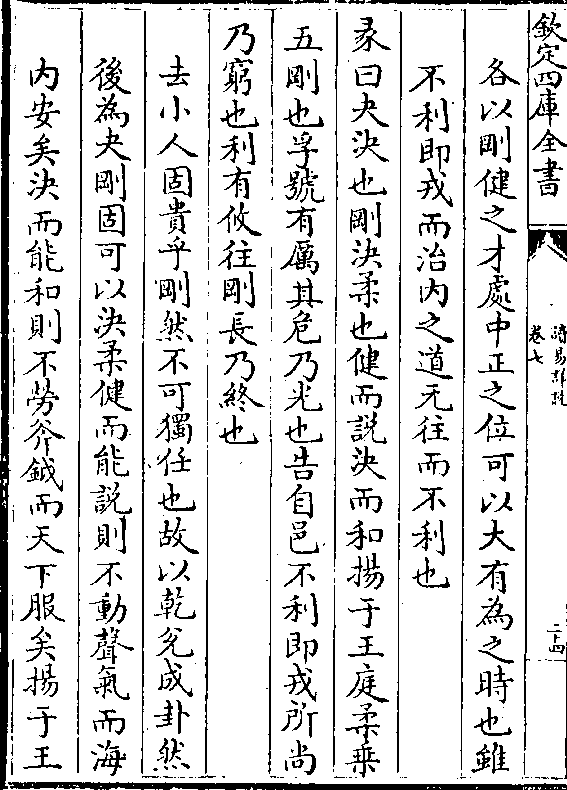 欽定四庫全書
讀易詳說
卷七
二十四
各以剛健之才處中正之位可以大有為之時也雖
不利即戎而治内之道无往而不利也
彖曰夬決也剛決柔也健而説決而和揚于王庭柔乗
五剛也孚號有厲其危乃光也告自邑不利即戎所尚
乃窮也利有攸往剛長乃終也
去小人固貴乎剛然不可獨任也故以乾兊成卦然
後為夬剛固可以決柔健而能説則不動聲氣而海
内安矣決而能和則不勞斧鉞而天下服矣揚于王